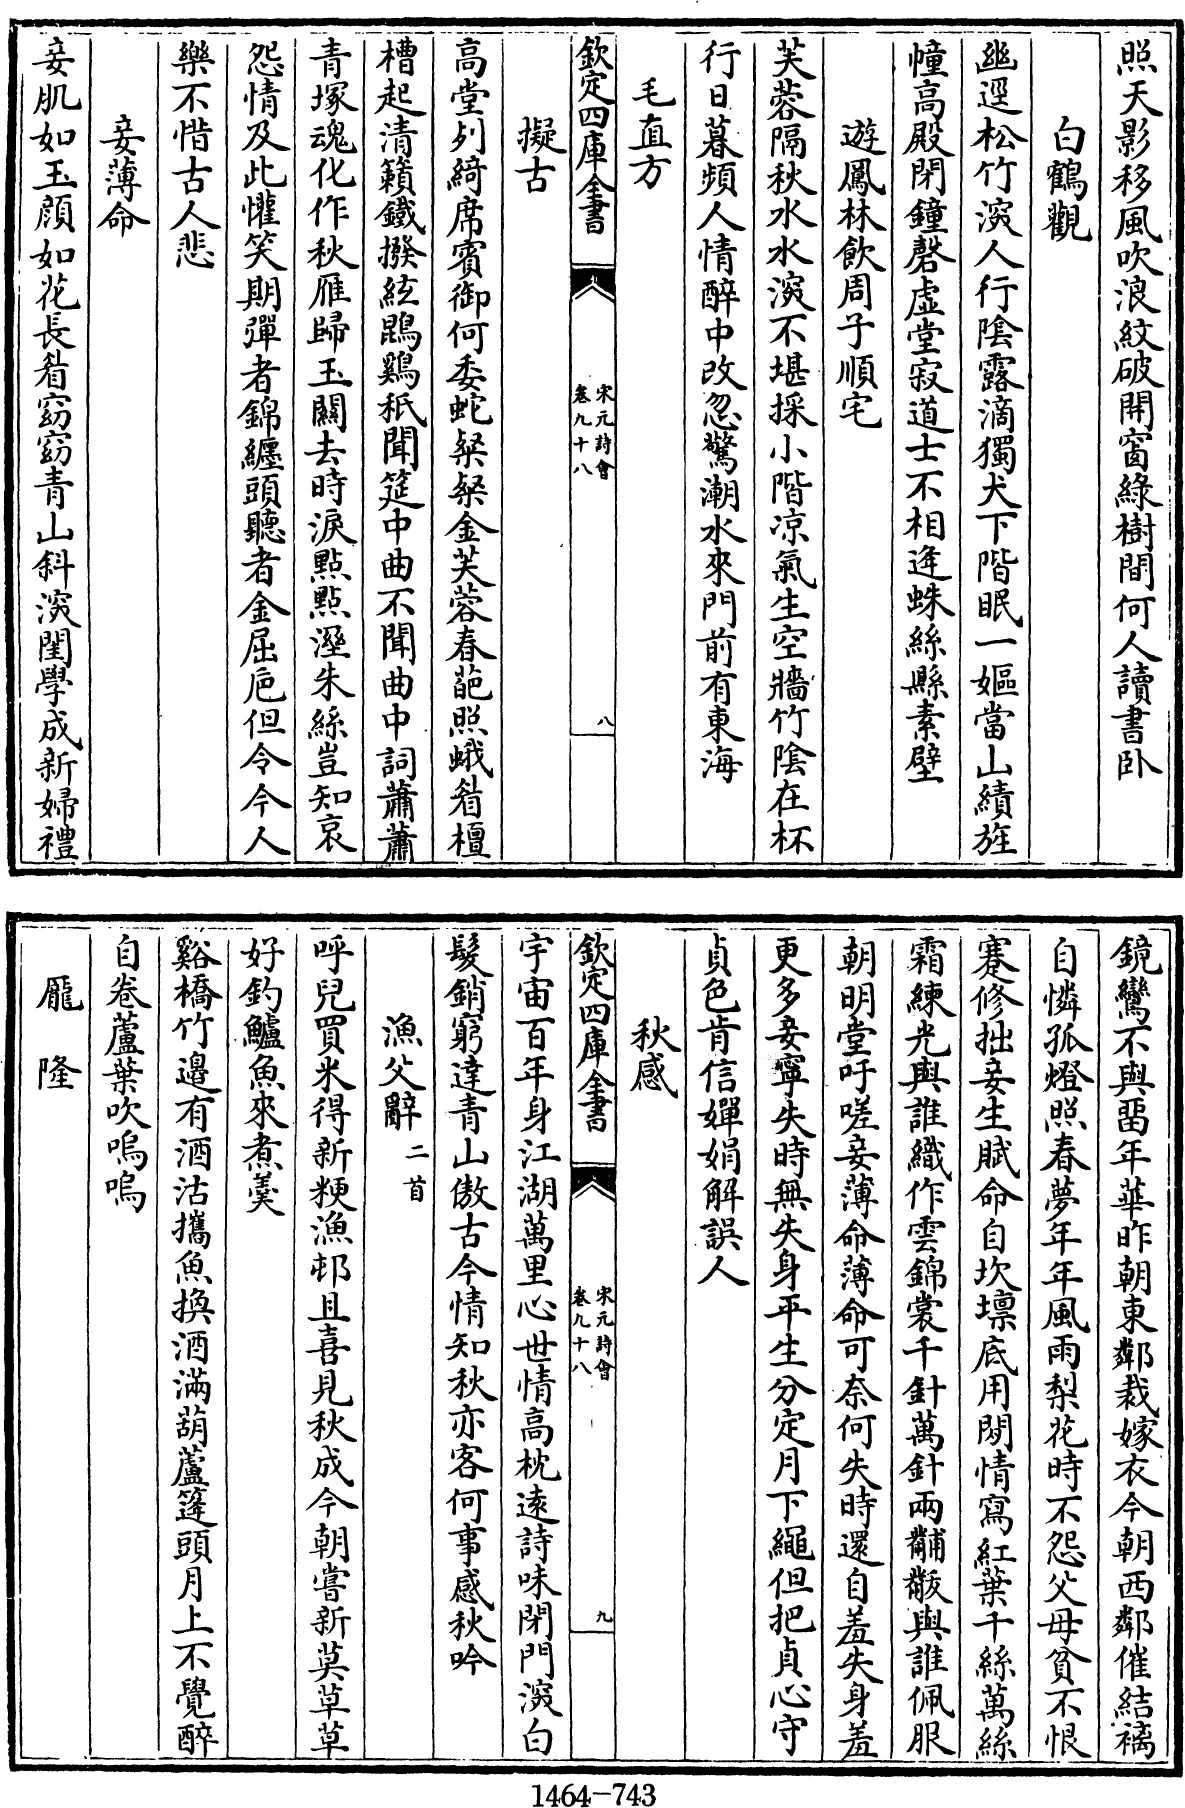 照天影移風吹浪紋破開窗綠樹間何人讀書卧
白鶴觀
幽逕松竹深人行陰露滴獨犬下階眠一嫗當山績旌
幢高殿閉鐘磬虛堂寂道士不相逢蛛絲縣素壁
遊鳳林飲周子順宅
芙蓉隔秋水水深不堪採小階凉氣生空牆竹陰在杯
行日暮頻人情醉中改忽驚潮水來門前有東海
毛直方
欽定四庫全書
宋元詩會
卷九十八
八
擬古
高堂列綺席賓御何委蛇粲粲金芙蓉春葩照蛾眉檀
槽起清籟鐵撥絃鵾鷄秖聞筵中曲不聞曲中詞蕭蕭
青塚魂化作秋雁歸玉關去時淚點點溼朱絲豈知哀
怨情及此懽笑期彈者錦纏頭聽者金屈卮但令今人
樂不惜古人悲
妾薄命
妾肌如玉顔如花長眉窈窈青山斜深閨學成新婦禮
鏡鸞不與留年華昨朝東鄰裁嫁衣今朝西鄰催結褵
自憐孤燈照春夢年年風雨梨花時不怨父母貧不恨
蹇修拙妾生賦命自坎壈底用閑情寫紅葉千絲萬絲
霜練光與誰織作雲錦裳千針萬針兩黼黻與誰佩服
朝明堂吁嗟妾薄命薄命可奈何失時還自羞失身羞
更多妾寧失時無失身平生分定月下繩但把貞心守
貞色肯信嬋娟解誤人
秋感
欽定四庫全書
宋元詩會
卷九十八
九
宇宙百年身江湖萬里心世情高枕遠詩味閉門深白
髮銷窮達青山傲古今情知秋亦客何事感秋吟
漁父辭二首
呼兒買米得新粳漁邨且喜見秋成今朝嘗新莫草草
好釣鱸魚來煮羹
谿橋竹邉有酒沽攜魚換酒滿葫蘆篷頭月上不覺醉
自卷蘆葉吹嗚嗚
龎隆
1464-743